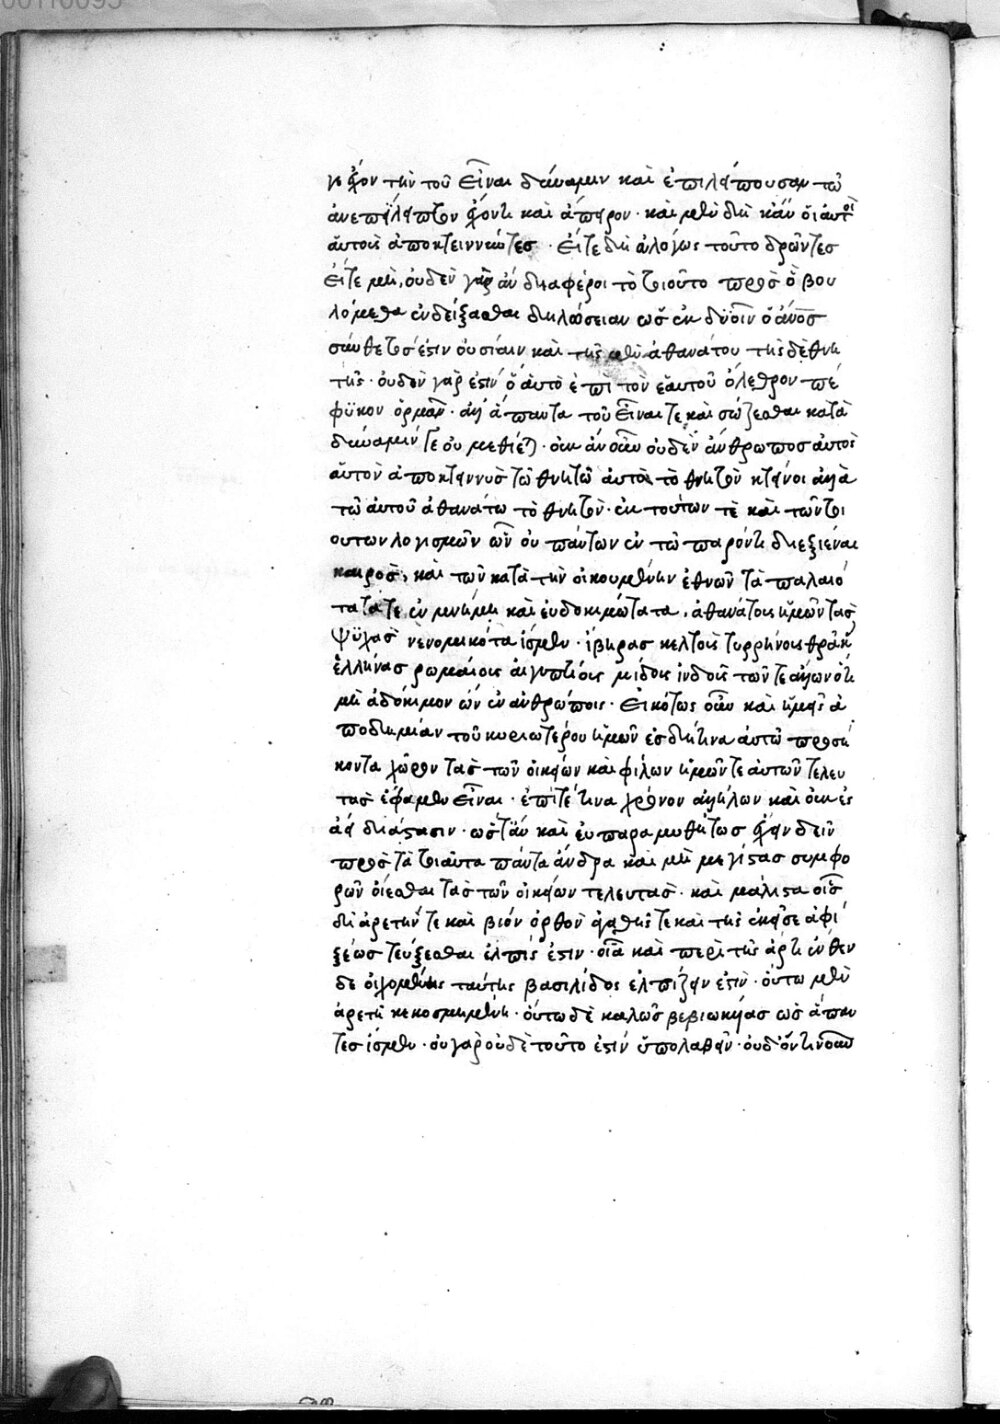 γι ἔχον τὴν τοῦ εἶναι δύναμιν καὶ ἐπιλείπουσαν τῶ
ἀνεπιλείπτον ἔχοντι καὶ ἄπειρον · καὶ μὲν δὴ κἂν οἱ αὐτοὶ
αὑτοὺς ἀποκτειννύντες · εἴτε δὴ ἀλόγως τοῦτο δρῶντες
εἴτε μὴ, οὐδὲν γὰρ ἂν διαφέροι τὸ τοιοῦτο πρὸς ὃ βου
λόμεθα ἐνδείξασθαι δηλώσειαν ὡς ἐκ δυοῖν ὁ ἄνος
σύνθετος ἐστιν οὐσίαιν καὶ τῆς μὲν ἀθανάτου τῆς δὲ θνη
τῆς · οὐδὲν γάρ ἐστιν ὃ αὐτὸ ἐπὶ τὸν ἑαυτοῦ ὄλεθρον πέ
φϋκον ὁρμᾶν · ἀλλ' ἅπαντα τοῦ εἶναι τε καὶ σώζεσθαι κατὰ
δύναμιν τε οὐ μεθίεται · οὐκ ἂν οὖν οὐδεὶς ἄνθρωπος αὐτὸς
αὑτὸν ἀποκτειννὺς τῶ θνητῶ αὐτὸ τὸ θνητὸν κτείνοι ἀλλὰ
τῶ αὑτοῦ ἀθανάτω τὸ θνητὸν · ἐκ τούτων τὲ καὶ τῶν τοι
ούτων λογισμῶν ὧν οὐ πάντων ἐν τῶ παρόντι διεξιέναι
καιρὸς, καὶ τῶν κατὰ τὴν οἰκουμένην ἐθνῶν τὰ παλαιό
τατά τε ἐν μνήμη καὶ εὐδοκιμώτατα, ἀθανάτους ἡμῶν τὰς
ψϋχὰς νενομικότα ἴσμεν · ἴβηρας κελτοὺς τυρρηνοὺς θρᾶκας
ἕλληνας ρωμαίους αἰγυπτίους μίδους ἰνδοὺς τῶν τε ἄλλων ὅτι
μὴ ἀδόκιμον ὂν ἐν ἀνθρώποις · εἰκότως οὖν καὶ ἡμεῖς ἀ
ποδημίαν τοῦ κυριωτέρου ἡμῶν ἐς δή τινα αὐτῶ προσή
κοντα χῶρον τὰς τῶν οἰκείων καὶ φίλων ἡμῶν τε αὐτῶν τελευ
τὰς ἔφαμεν εἶναι · ἐπί τέ τινα χρόνον ἀλλήλων καὶ οὐκ ἐς
ἀεὶ διάστασιν · ὥστ' ἂν καὶ εὐπαραμυθήτως ἔχειν δεῖν
πρὸς τὰ τοιαῦτα πάντα ἄνδρα καὶ μὴ μεγίστας συμφο
ρῶν οἴεσθαι τὰς τῶν οἰκείων τελευτὰς · καὶ μάλιστα οἷς
δι' ἀρετήν τε καὶ βίον ὀρθὸν ἀγαθῆς τε καὶ τῆς ἐκεῖσε ἀφί
ξεως τεύξεσθαι ἐλπίς ἐστιν · οἷα καὶ περὶ τῆς ἄρτι ἐνθέν
δε οἰχομένης ταύτης βασιλίδος ἐλπίζειν ἐστὶν · οὕτω μὲν
ἀρετῆ κεκοσμημένη · οὕτω δὲ καλῶς βεβιωκυίας ὡς ἅπαν
τες ἴσμεν · οὐ γὰρ οὐδὲ τοῦτο ἐστιν ὑπολαβεῖν · οὐδ' ὁντινοῦν